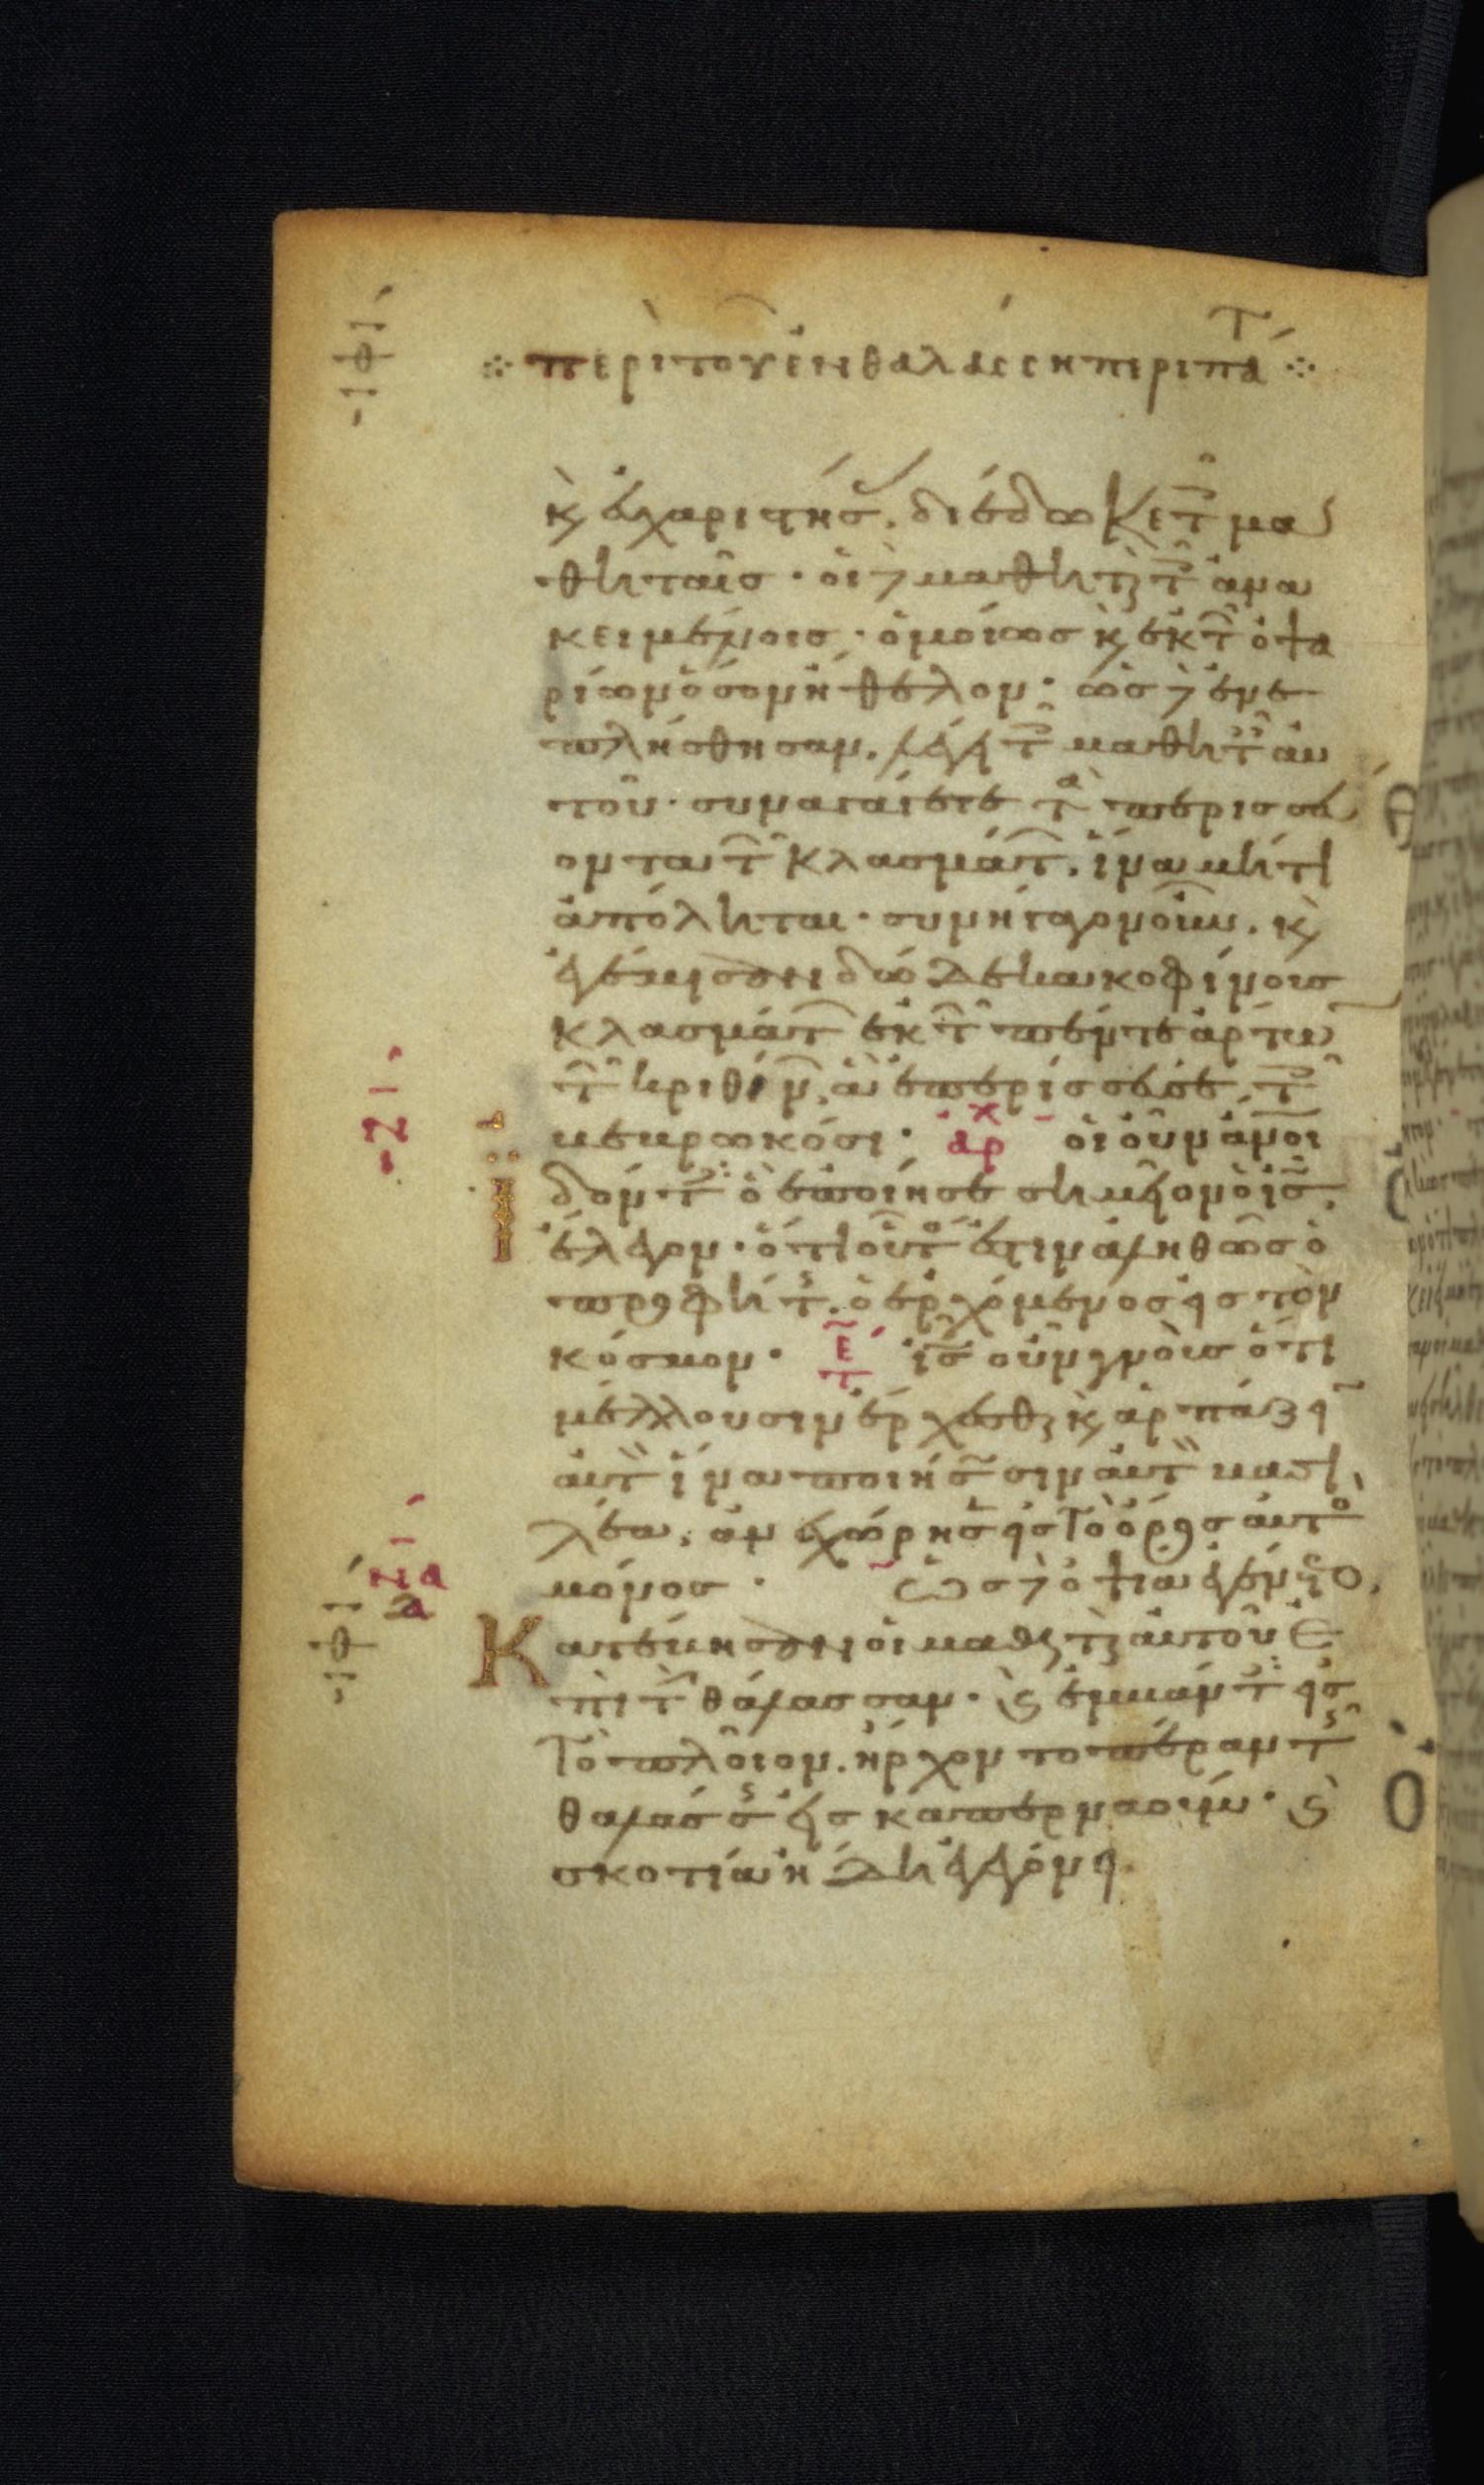 περὶ τοῦ ἐν θαλάσσῃ περιπάτ
κ εὐχαριστήσας. διέδωκε τοῖς μα
θηταῖς· οἱ δὲ μαθηταὶ τοῖς ἀνα
κειμένοις· ὁμοίως κ ἐκ τῶν ὀψα
ρίων ὅσον ἤθελον· ὡς δὲ ἐνε
πλήσθησαν. λέγει τοῖς μαθηταῖς αὐ
τοῦ· συναγάγετε τὰ περισσεύ
οντα τῶν κλασμάτων. ἵνα μήτι
ἀπόληται· συνήγαγον οὖν. κ
ἐγέμισαν δώδεκα κοφίνους
κλασμάτων ἐκ τῶν πέντε ἄρτων
τῶν κριθίνων, ἃ ἐπερίσσευσε τοῖς
βεβρωκόσι· αρχ οἱ οὖν ἄνοι
ἰδόντες ὃ ἐποίησε σημεῖον ὁ ις.
ἔλεγον· ὅτι οὗτος ἐστιν ἀληθῶς ὁ
προφήτης. ὁ ἐρχόμενος εἰς τὸν
κόσμον· τε ις οὖν γνοὺς ὅτι
μέλλουσιν ἔρχεσθαι κ ἁρπάζειν
αὐτὸν ἵνα ποιήσωσιν αὐτὸν βασι
λέα, ἀνεχώρησεν εἰς τὸ ὄρος αὐτὸς
μόνος· Ὡς δὲ ὀψία ἐγένετο,
Κατέβησαν οἱ μαθηταὶ αὐτοῦ ἐ
πὶ τὴν θάλασσαν· καὶ ἐμβάντες εἰς
τὸ πλοῖον. ἤρχοντο πέραν τῆς
θαλάσσης εἰς καπερναούμ· καὶ
σκοτία ἤδη ἐγεγόνει.